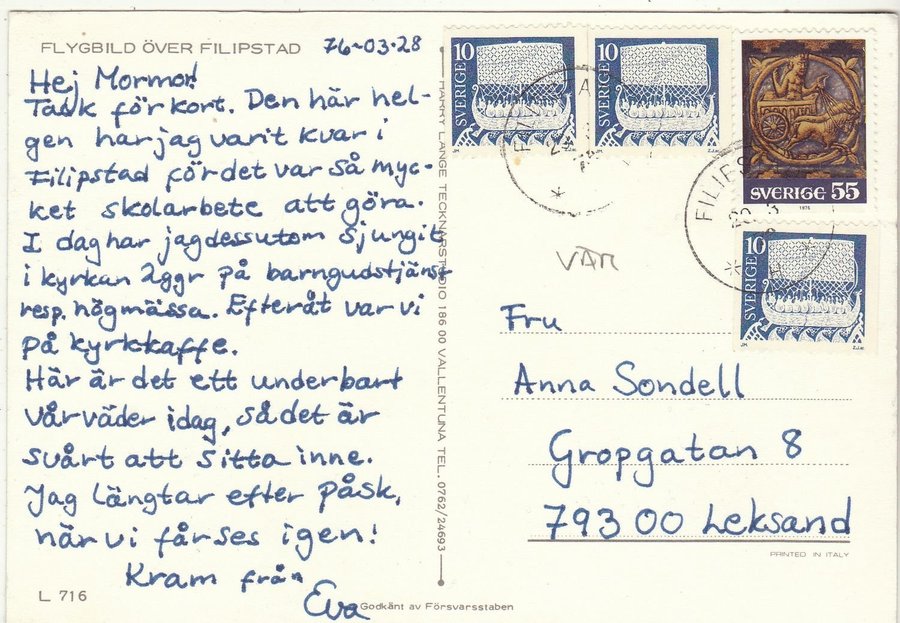 FLYGBILD ÖVER FILIPSTAD
76-03-28
Hej Mormor!
Tack för kort. Den här hel-
gen har jag varit kvar i
Filipstad för det var så myc-
ket skolarbete att göra.
I dag har jag dessutom sjungit
i kyrkan 2ggr på barngudstjänst
resp. högmässa. Efteråt var vi
på kyrkkaffe.
Här är det ett underbart
vårväder idag, så det är
svårt att sitta inne.
Jag längtar efter påsk,
när vi får ses igen!
Kram från
Eva
L 716
HARRY LANGE TECKNARSTUDIO 186 00 VALLENTUNA TEL. 0762/24693
Godkänt av Försvarsstaben
SVERIGE 10
SVERIGE 10
SVERIGE 55
1975
FILIPS
SVERIGE 10
VAR
Fru
Anna Sondell
Gropgatan 8
793 00 Leksand
PRINTED IN ITALY